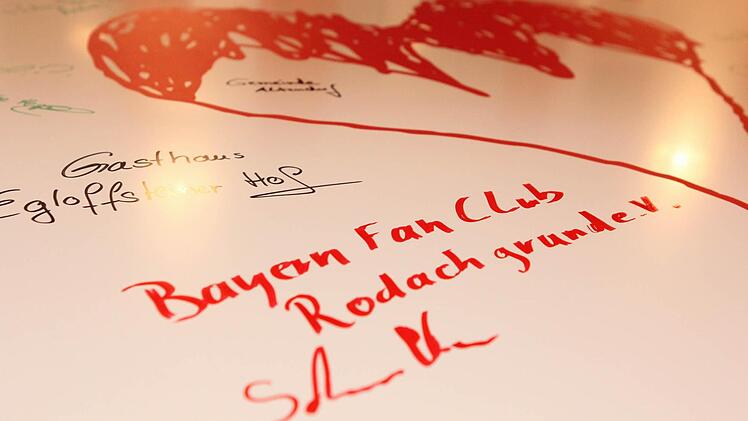 Gemeinde
Altendorf
Gasthaus
Egloffsteiner Hof
Bayern Fan Club
Rodach grunde.V.